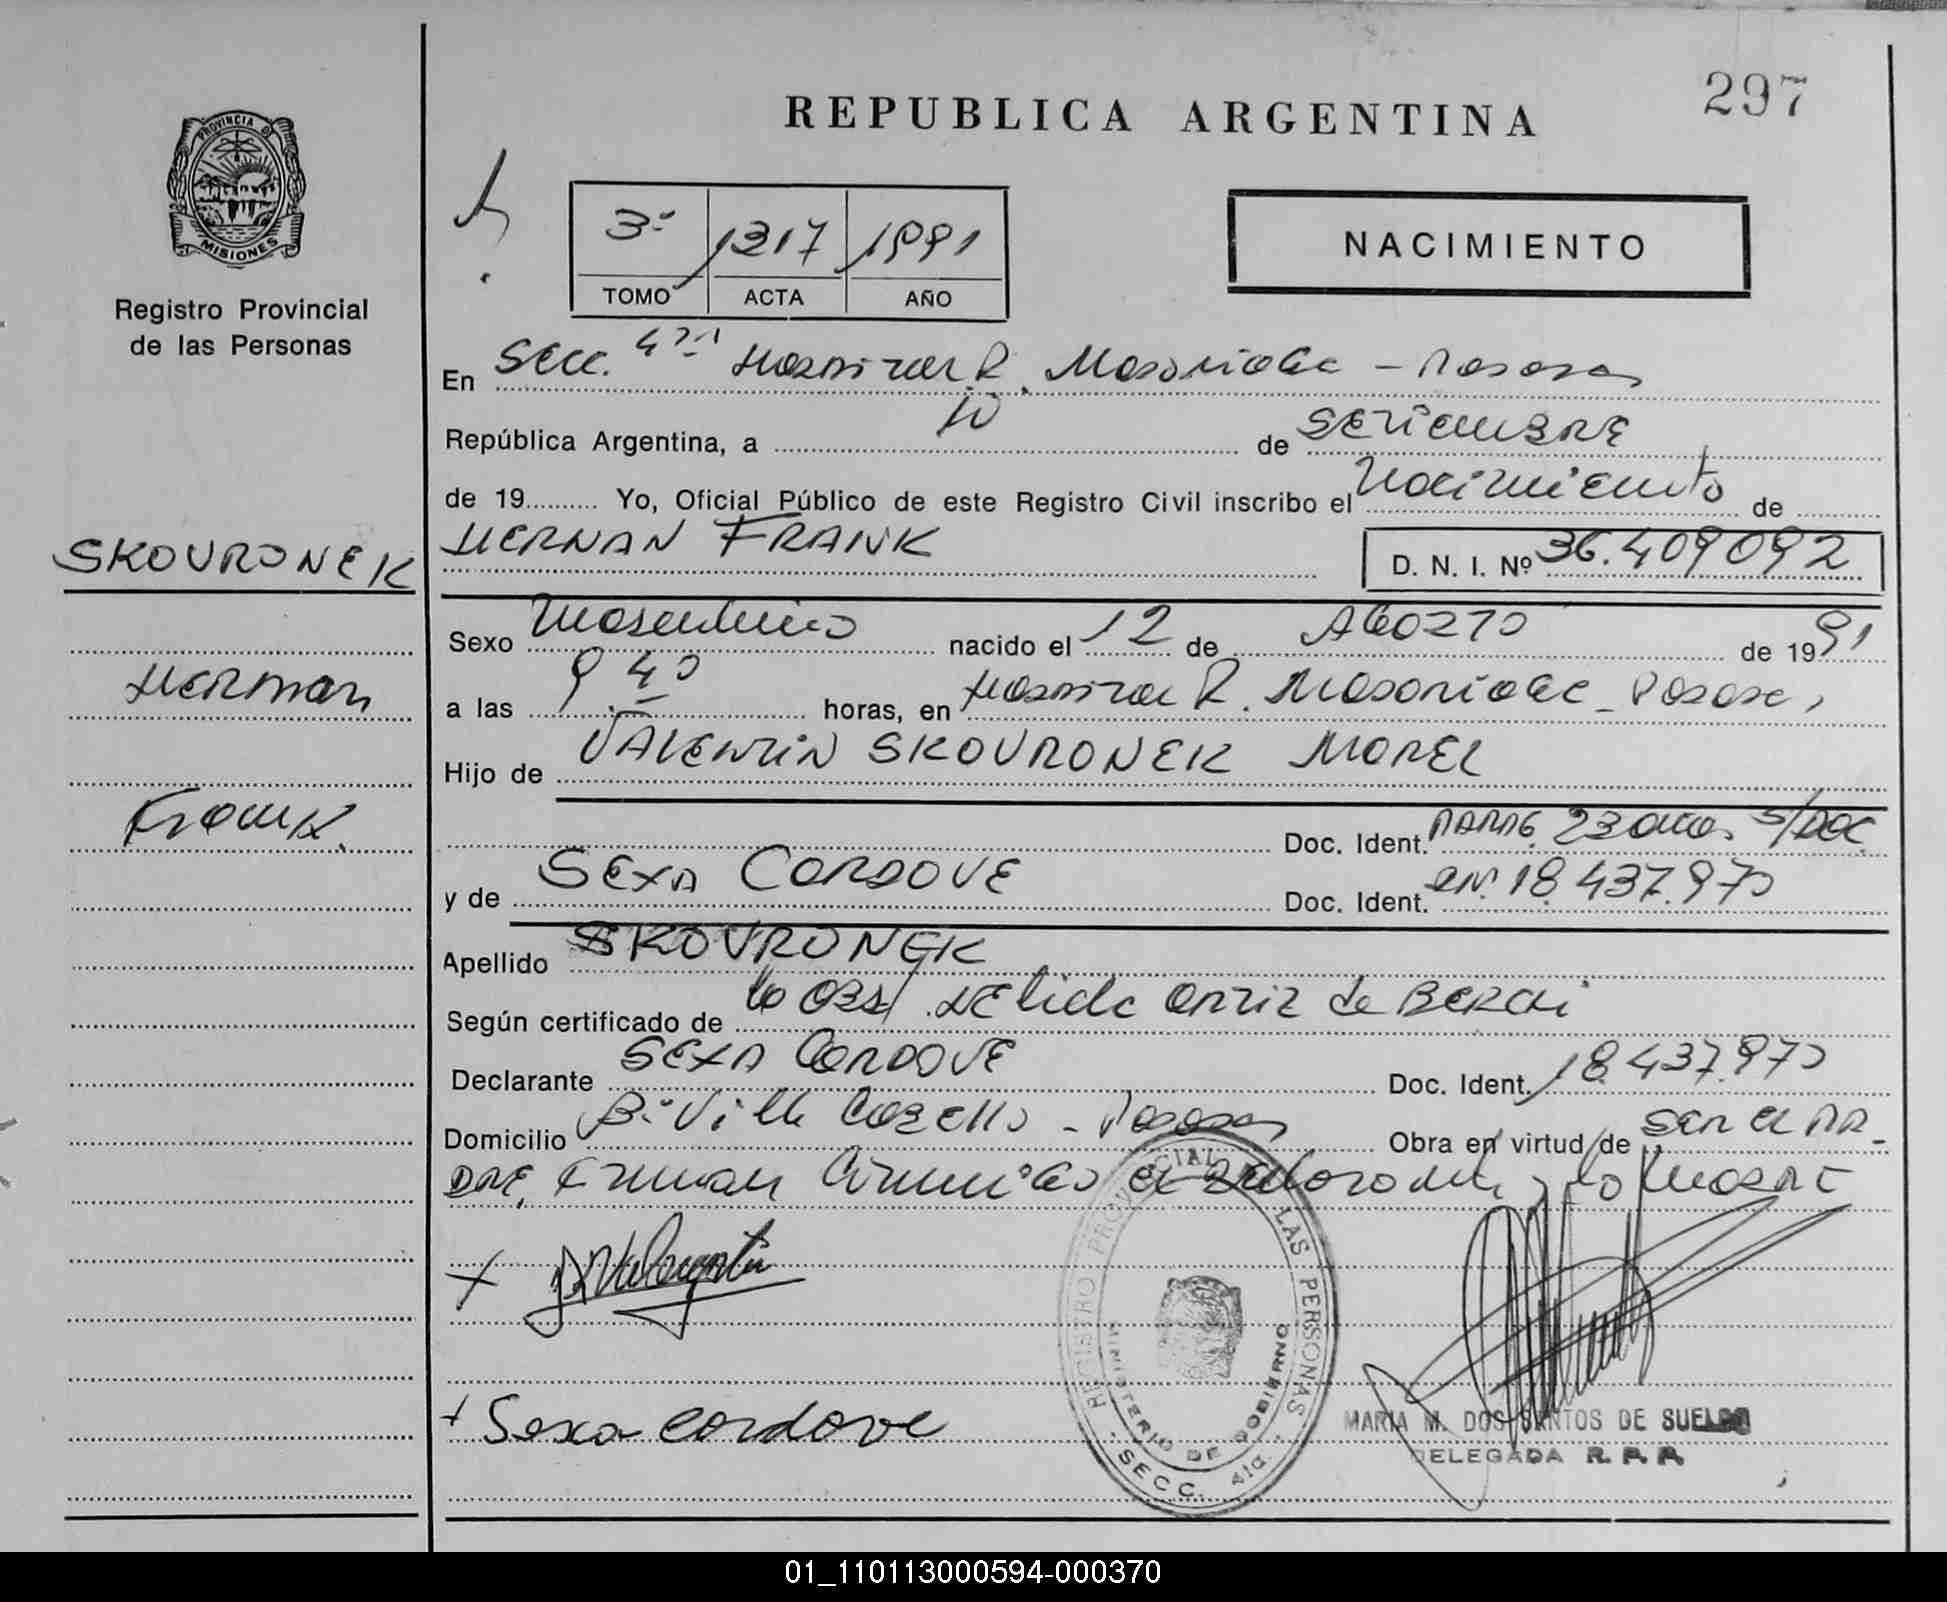 297
REPUBLICA ARGENTINA
PROVINCIA DE
MISIONES
Registro Provincial
de las Personas
3º 1317 1991
TOMO ACTA AÑO
NACIMIENTO
En Secc. 4ta Hospital R. Madariaga - Posadas
República Argentina, a 10 de SETIEMBRE
de 19 Yo, Oficial Público de este Registro Civil inscribo el Nacimiento de
SKOVRONEK
HERNAN FRANK D. N. I. Nº 36.409092
Sexo Masculino nacido el 12 de AGOSTO de 1991
Hernan
a las 9 40 horas, en Hospital R. Madariaga - Posadas
Hijo de VALENTIN SKOVRONEK MOREL
Frank.
Doc. Ident. PARAG. 23 años S/DOC.
y de SEXA CORDOVE Doc. Ident. 18.437.970
Apellido SKOVRONEK
Según certificado de la OBST. NElida ORTIZ de BERCHI
Declarante SEXA CORDOVE Doc. Ident. 18.437.970
Domicilio Bº Villa Cabello - Posadas Obra en virtud de SER EL PA-
DRE. Firman el y la MADRE
+ Sexa cordove
REGISTRO PROVINCIAL DE LAS PERSONAS
MINISTERIO DE GOBIERNO
SECC. 4ta.
MARIA M. DOS SANTOS DE SUELDO
DELEGADA R. P. P.
01_110113000594-000370